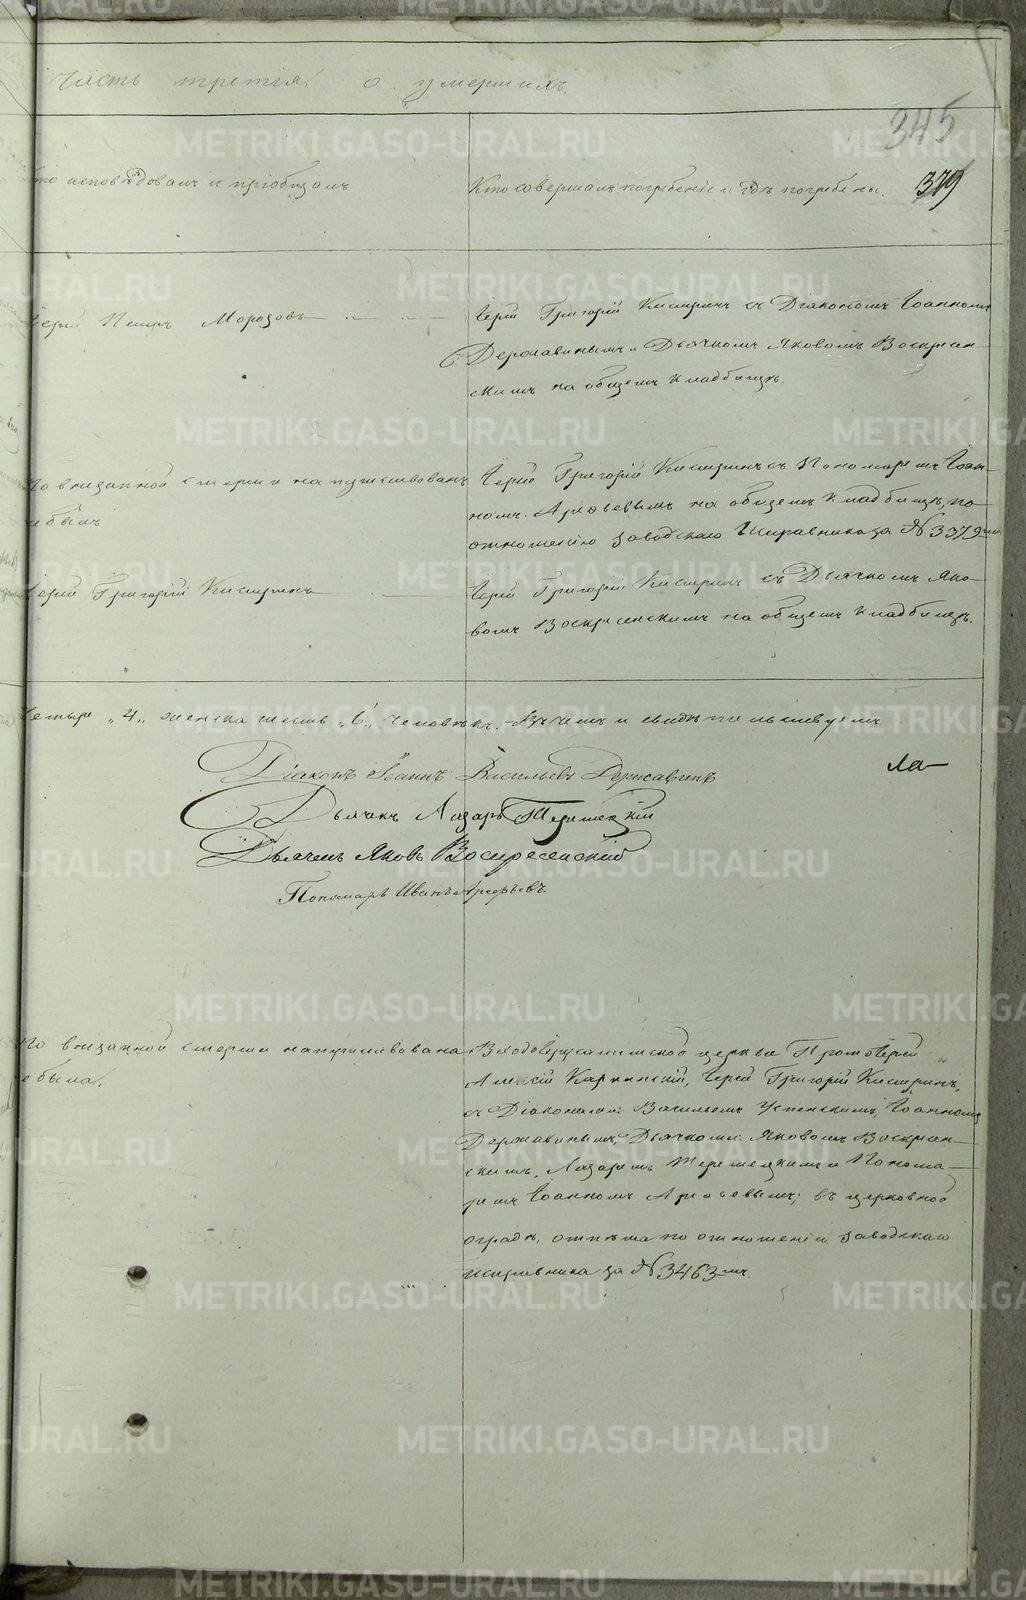 Часть третія, о умершихъ.
345
то исповѣдовалъ и пріобщалъ
Кто совершалъ погребеніе и гдѣ погребены.
379
Іерей Петръ Морозовъ
Іерей Григорій Кистринъ съ Діакономъ Іоанномъ
Державинымъ и Дьячкомъ Яковомъ Воскресен
скимъ на общемъ кладбищѣ.
По внезапной смерти напутствованъ
не былъ
Іерей Григорій Кистринъ съ Пономаремъ Іоан-
номъ Арефьевымъ на общемъ кладбищѣ, по
отношенію заводскаго Исправника за № 3379мъ
Іерей Григорій Кистринъ
Іерей Григорій Кистринъ съ Дьячкомъ Яко-
вомъ Воскресенскимъ на общемъ кладбищѣ.
четыре „4„ женска шесть „6„ человѣкъ. Въ чемъ и свидѣтельствуемъ
Діаконъ Іоаннъ Васильевъ Державинъ
ла
Дьячекъ Лазарь
Дьячекъ Яковъ Воскресенскій
Пономарь Иванъ Арефьевъ
По внезапной смерти напутствована
не была.
Входоіерусалимской церкви Протоіерей
Алексій Карпинскій, Іерей Григорій Кистринъ,
съ Діаконами: Васильемъ Успенскимъ, Іоанномъ
Державинымъ, Дьячками: Яковомъ Воскресен-
скимъ, Лазаремъ и Понома-
ремъ Іоанномъ Арефьевымъ; въ церковной
оградѣ, отпѣта по отношенію заводскаго
исправника за № 3463мъ.